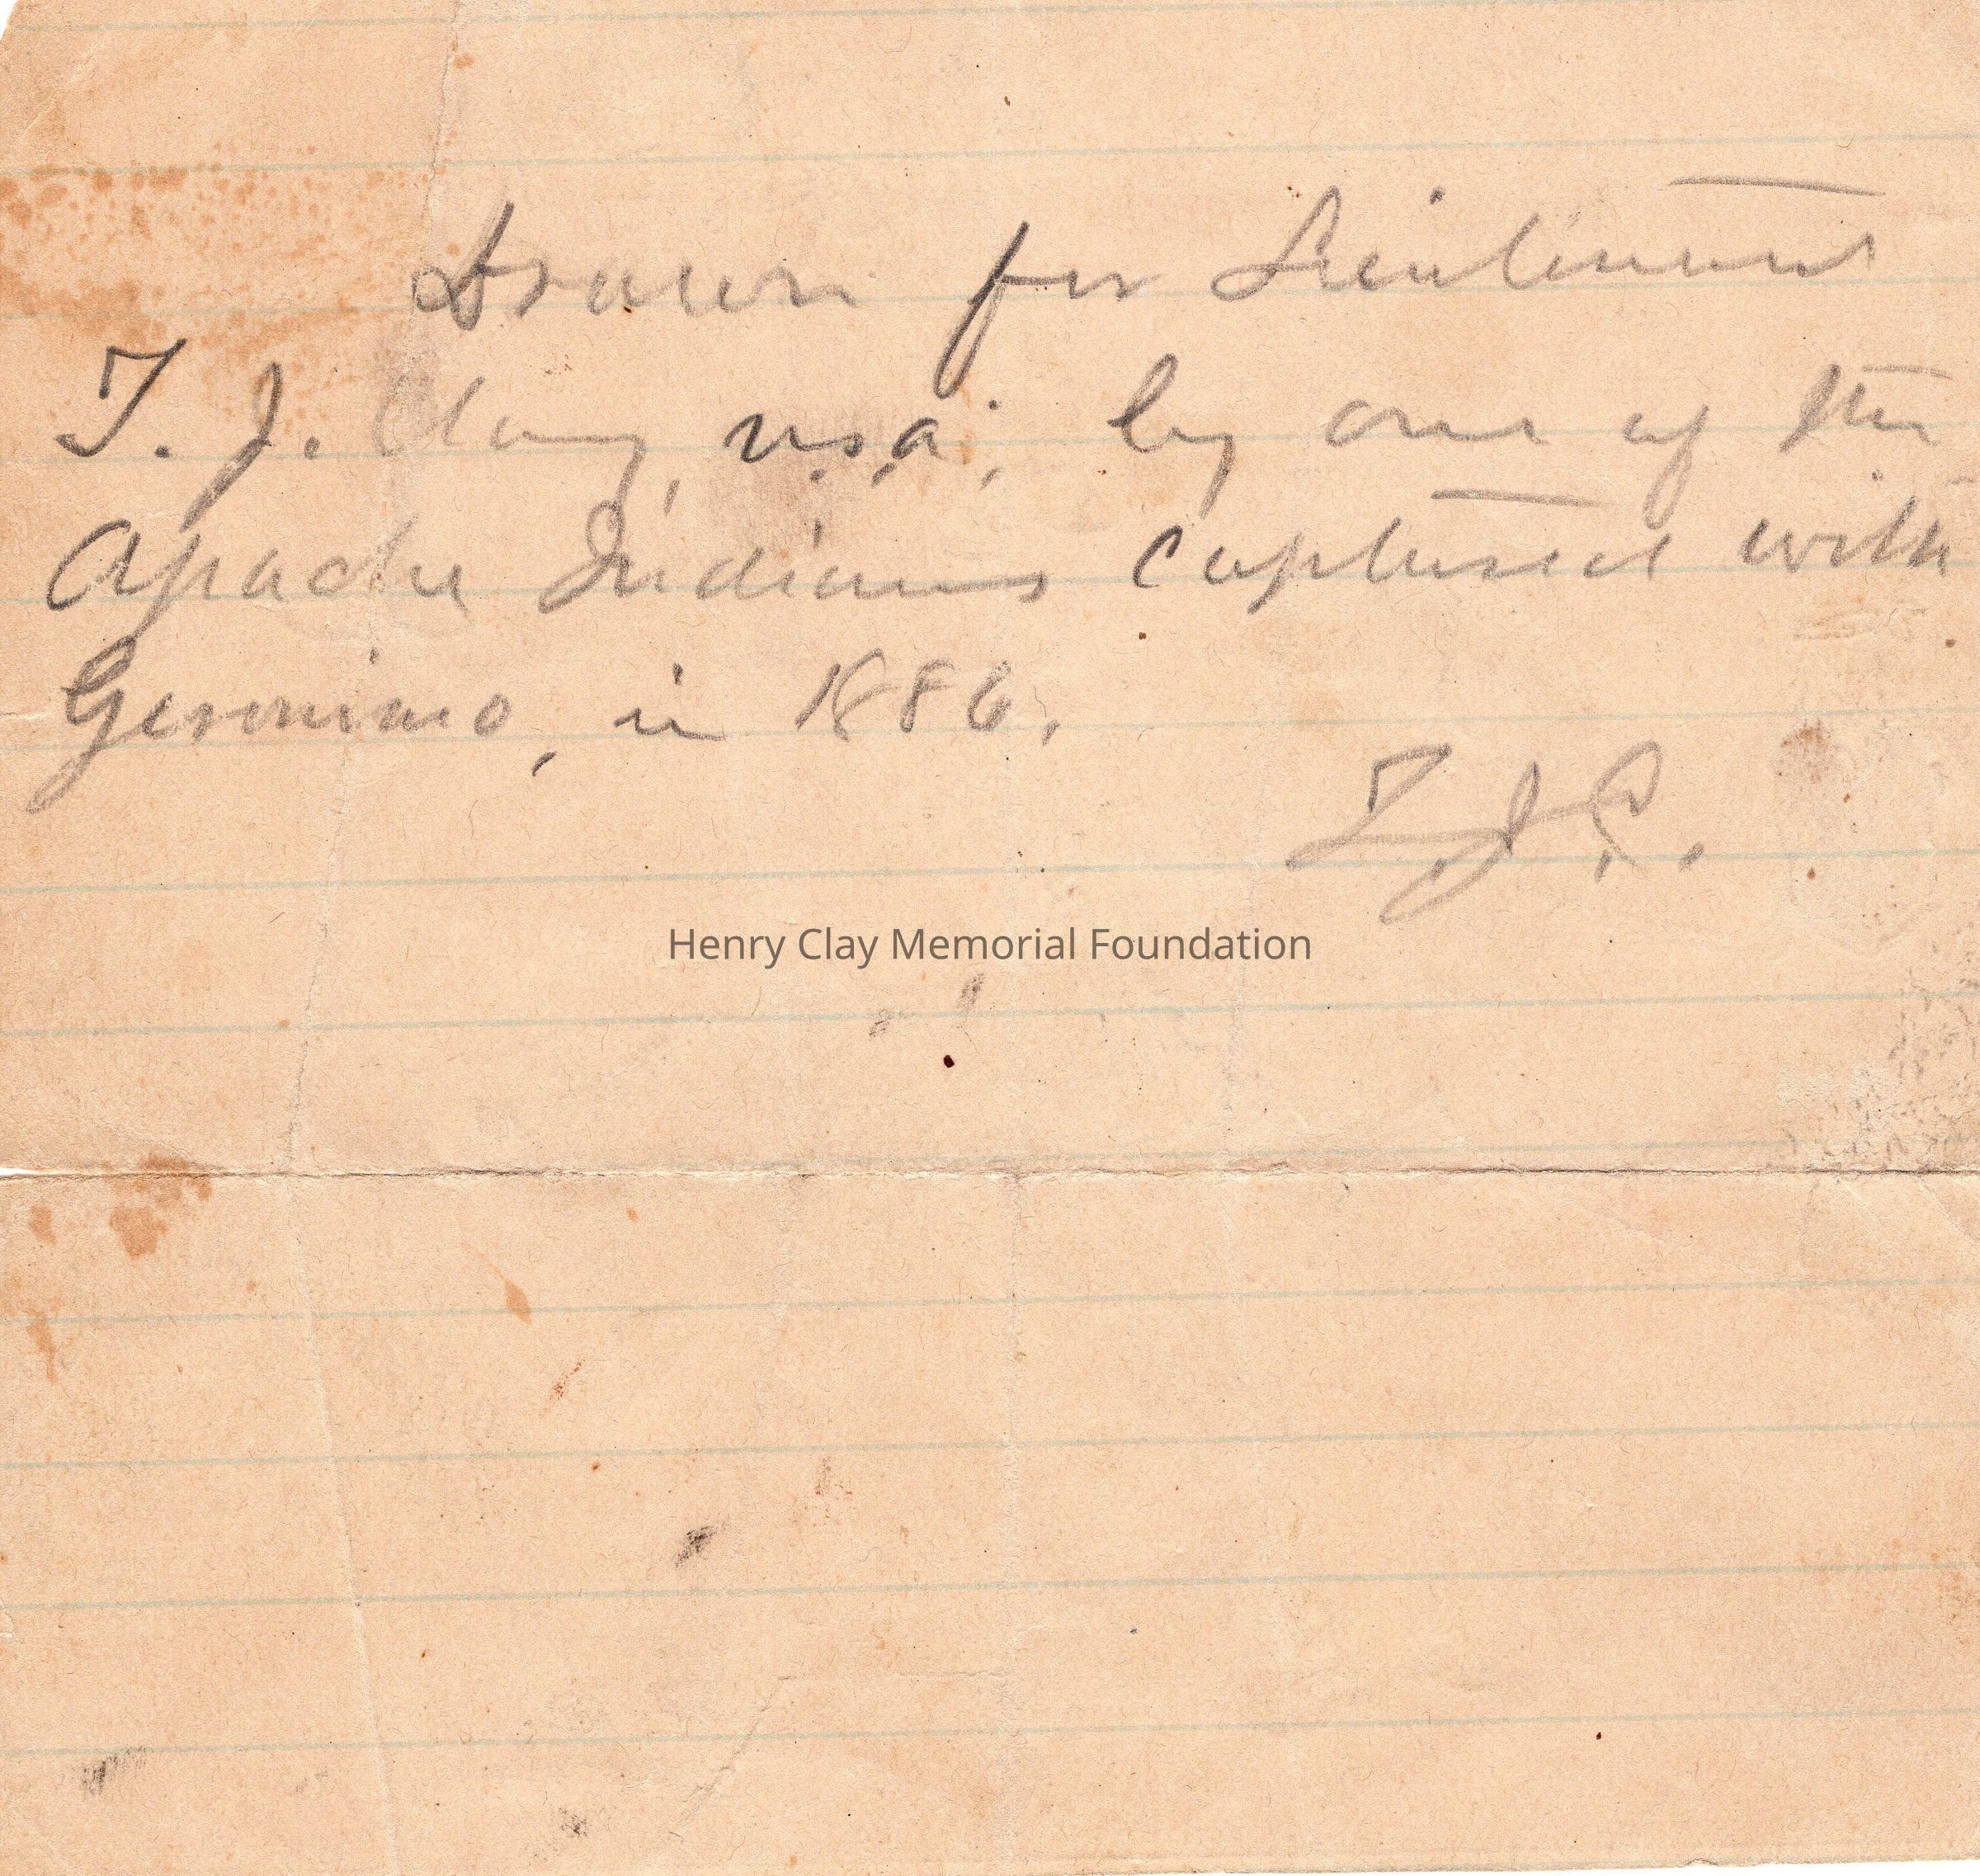 Drawn for Lieutenant
T. J. Clay, U.S.A., by one of the
Apache Indians captured with
Geronimo, in 1886.
T.J.C.
Henry Clay Memorial Foundation